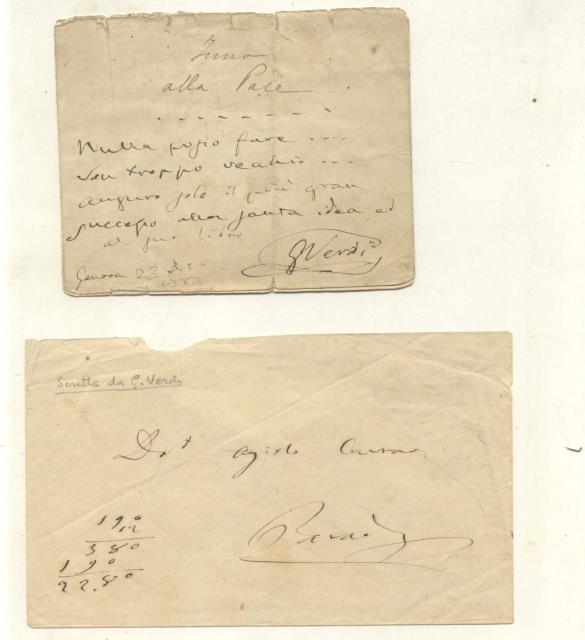 Inno
alla Pace
. . . . . . . .
Nulla posso fare ....
Son troppo vecchio ...
Auguro solo il più gran
successo alla santa idea, ed
al suo libro
G Verdi
Genova 22 Dic
Scritta da G. Verdi
Dot
190
12
380
190
22.80